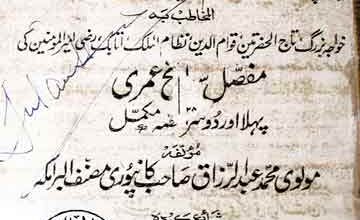 المخاطب بہ
خواجہ بزرگ تاج الحضرتین قوام الدین نظام الملک اتابک رضی امیر المومنین کی
مفصل سوانح عمری
پہلا اور دوسرا حصہ مکمل
مؤلفہ
مولوی محمد عبدالرزاق صاحب کانپوری مصنف البرامکہ